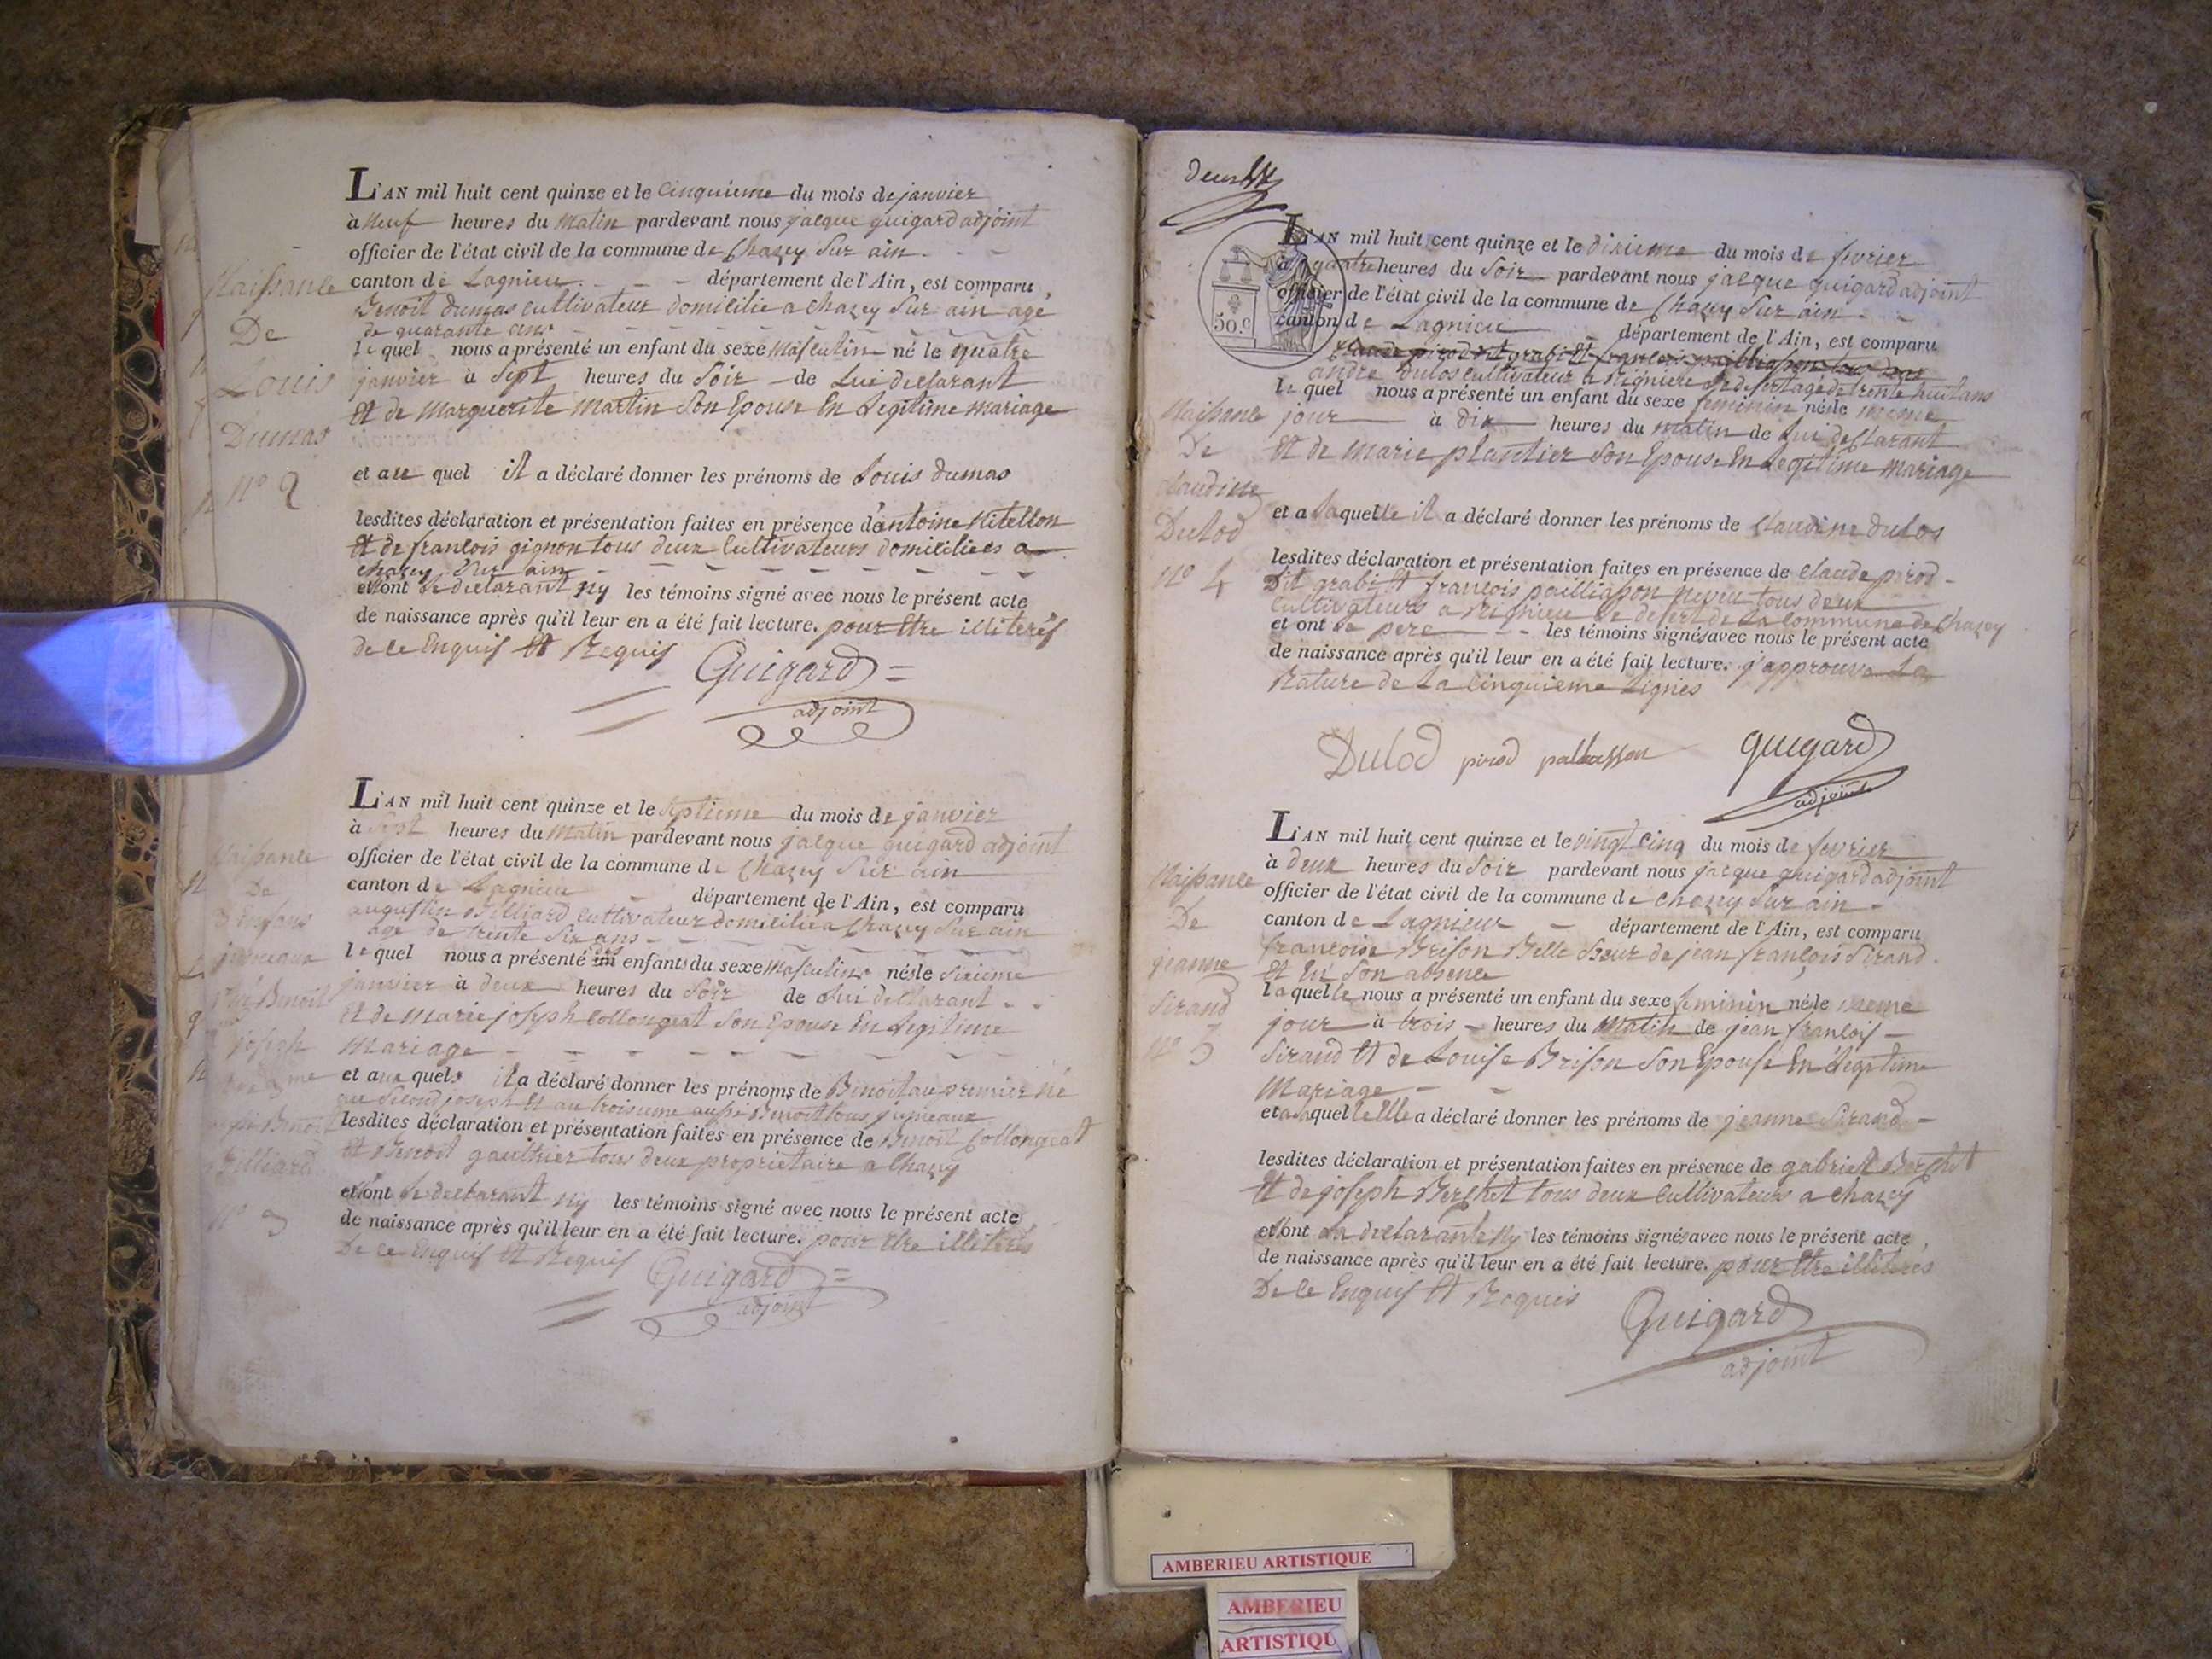 Naissance
De
Louis
Dumas
n° 2
L'AN mil huit cent quinze et le cinquieme du mois de janvier
à neuf heures du matin pardevant nous jacque guigard adjoint
officier de l'état civil de la commune de Chazey sur ain
canton de Lagnieu département de l'Ain, est comparu
Benoit dumas cultivateur domicilié a chazey sur ain agé
de quarante ans
le quel nous a présenté un enfant du sexe masculin né le quatre
janvier à sept heures du soir de lui declarant
et de marguerite martin son Epouse En Legitime mariage
et au quel il a déclaré donner les prénoms de Louis dumas
lesdites déclaration et présentation faites en présence d'antoine
et de francois gignon tous deux cultivateurs domiciliées a
chazey sur ain
et ont le declarant ny les témoins signé avec nous le présent acte
de naissance après qu'il leur en a été fait lecture. pour Etre illiterés
de ce Enquis et Requis
Guigard
adjoint
Naissance
De
3 Enfans
jumeaux
Benoit
joseph
3me
Benoit
Billiard
n° 3
L'AN mil huit cent quinze et le septieme du mois de janvier
à sept heures du matin pardevant nous jacque guigard adjoint
officier de l'état civil de la commune de Chazey sur ain
canton de Lagnieu département de l'Ain, est comparu
augustin Billiard cultivateur domicilié a Chazey sur ain
agé de trente six ans
le quel nous a présenté des enfants du sexe masculin nés le sixieme
janvier à deux heures du soir de lui declarant
et de marie joseph Collongeat son Epouse En Legitime
mariage
et aux quels il a déclaré donner les prénoms de Benoit au premier né
au second joseph et au troisieme aussi Benoit tous jumeaux
lesdites déclaration et présentation faites en présence de Benoit Collongeat
et Benoit gauthier tous deux proprietaire a Chazey
et ont le declarant ny les témoins signé avec nous le présent acte
de naissance après qu'il leur en a été fait lecture. pour Etre illiterés
De ce Enquis et Requis
Guigard
adjoint
50.c
Naissance
De
claudine
Dulod
n° 4
L'AN mil huit cent quinze et le dixieme du mois de fevrier
à quatre heures du soir pardevant nous jacque guigard adjoint
officier de l'état civil de la commune de Chazey sur ain
canton de Lagnieu département de l'Ain, est comparu
andré Dulos cultivateur a agé de trente huit ans
le quel nous a présenté un enfant du sexe feminin née le meme
jour à dix heures du matin de lui declarant
et de marie plantier son Epouse En Legitime mariage
et a laquelle il a déclaré donner les prénoms de claudine dulos
lesdites déclaration et présentation faites en présence de claude pirod
Dit grabi et francois tous deux
cultivateurs a Le desert de La commune de Chazey
et ont le pere les témoins signés avec nous le présent acte
de naissance après qu'il leur en a été fait lecture. j'approuve La
Rature de La cinquieme Lignes
Dulod pirod guigard
adjoint
Naissance
De
jeanne
Sirand
n° 5
L'AN mil huit cent quinze et le vingt cinq du mois de fevrier
à deux heures du soir pardevant nous jacque guigard adjoint
officier de l'état civil de la commune de Chazey sur ain
canton de Lagnieux département de l'Ain, est comparu
francoise Brison Belle Sœur de jean françois Sirand
et En son absence
laquelle nous a présenté un enfant du sexe feminin née le meme
jour à trois heures du matin de jean françois
Sirand et de Louise Brison son Epouse En Legitime
Mariage
et a laquelle Elle a déclaré donner les prénoms de jeanne Sirand
lesdites déclaration et présentation faites en présence de gabriel Berchet
et de joseph Berchet tous deux cultivateurs a chazey
et ont la declarante ny les témoins signés avec nous le présent acte
de naissance après qu'il leur en a été fait lecture. pour Etre illiterés
De ce Enquis et Requis
Guigard
adjoint
AMBERIEU ARTISTIQUE
AMBERIEU
ARTISTIQU